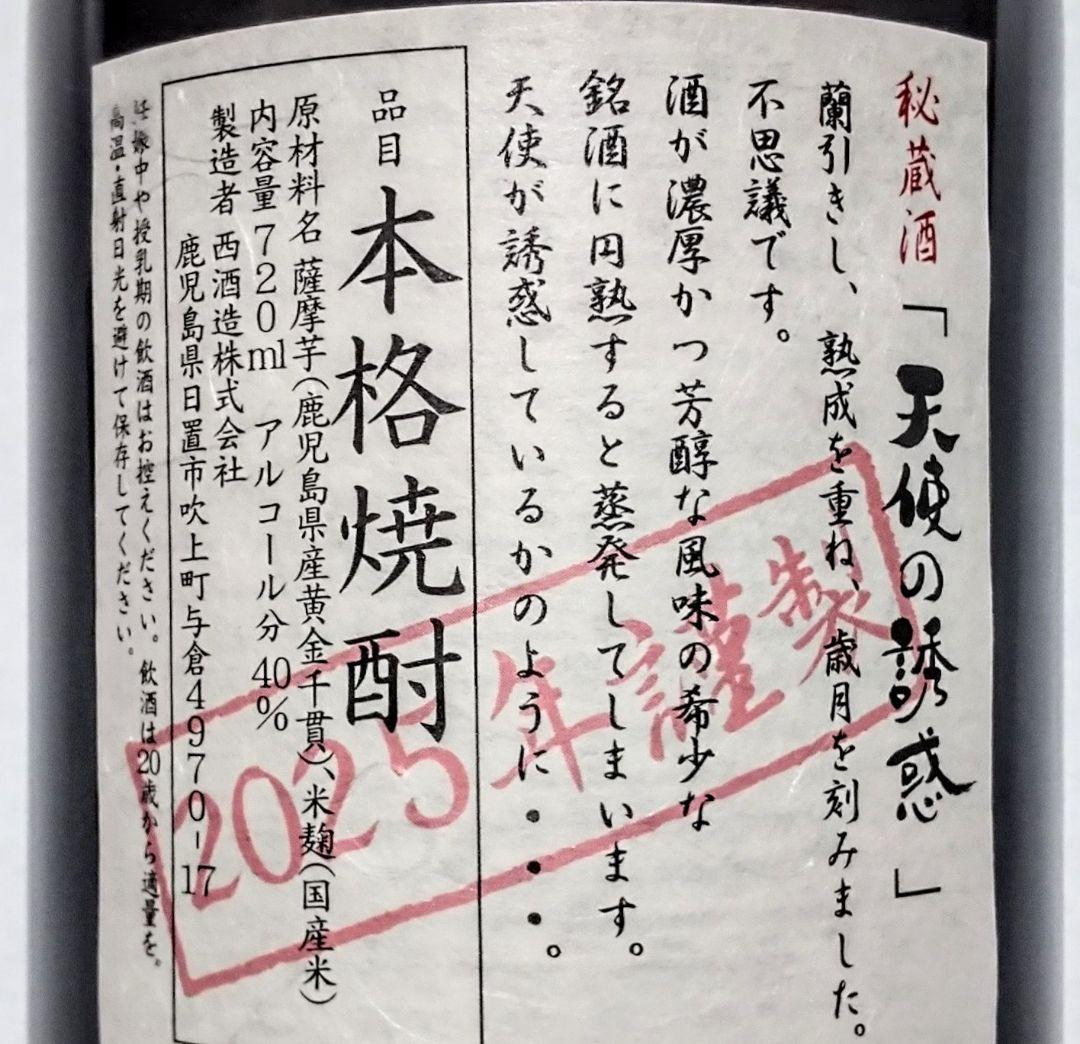 秘蔵酒「天使の誘惑」
蘭引きし、熟成を重ね、歳月を刻みました。
不思議です。
酒が濃厚かつ芳醇な風味の希少な
銘酒に円熟すると蒸発してしまいます。
天使が誘惑しているかのように・・・。
品目 本格焼酎
原材料名 薩摩芋(鹿児島県産黄金千貫)、米麹(国産米)
内容量 720ml アルコール分 40%
製造者 西酒造株式会社
鹿児島県日置市吹上町与倉4970-17
妊娠中や授乳期の飲酒はお控えください。飲酒は20歳から適量を。
高温・直射日光を避けて保存してください。
2025年謹製